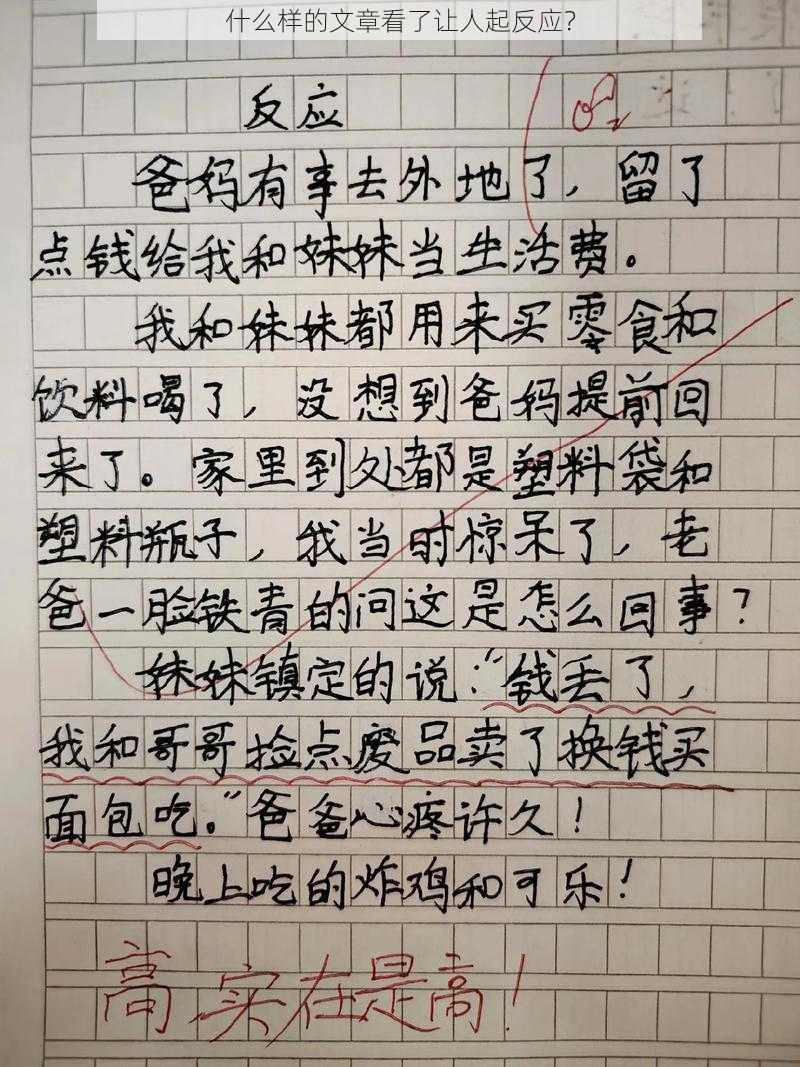 什么样的文章看了让人起反应？
反应
爸妈有事去外地了，留了
点钱给我和妹妹当生活费。
我和妹妹都用来买零食和
饮料喝了，没想到爸妈提前回
来了。家里到处都是塑料袋和
塑料瓶子，我当时惊呆了，老
爸一脸铁青的问这是怎么回事？
妹妹镇定的说：“钱丢了，
我和哥哥捡点废品卖了换钱买
面包吃。”爸爸心疼许久！
晚上吃的炸鸡和可乐！
高，实在是高！